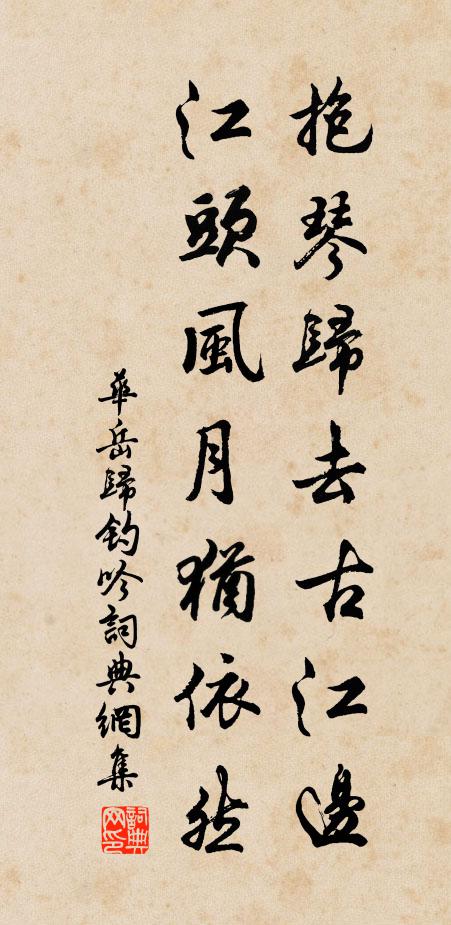 抱琴歸去古江邊
江頭風月猶依然
華岳歸釣吟詞典網集
詞典网印